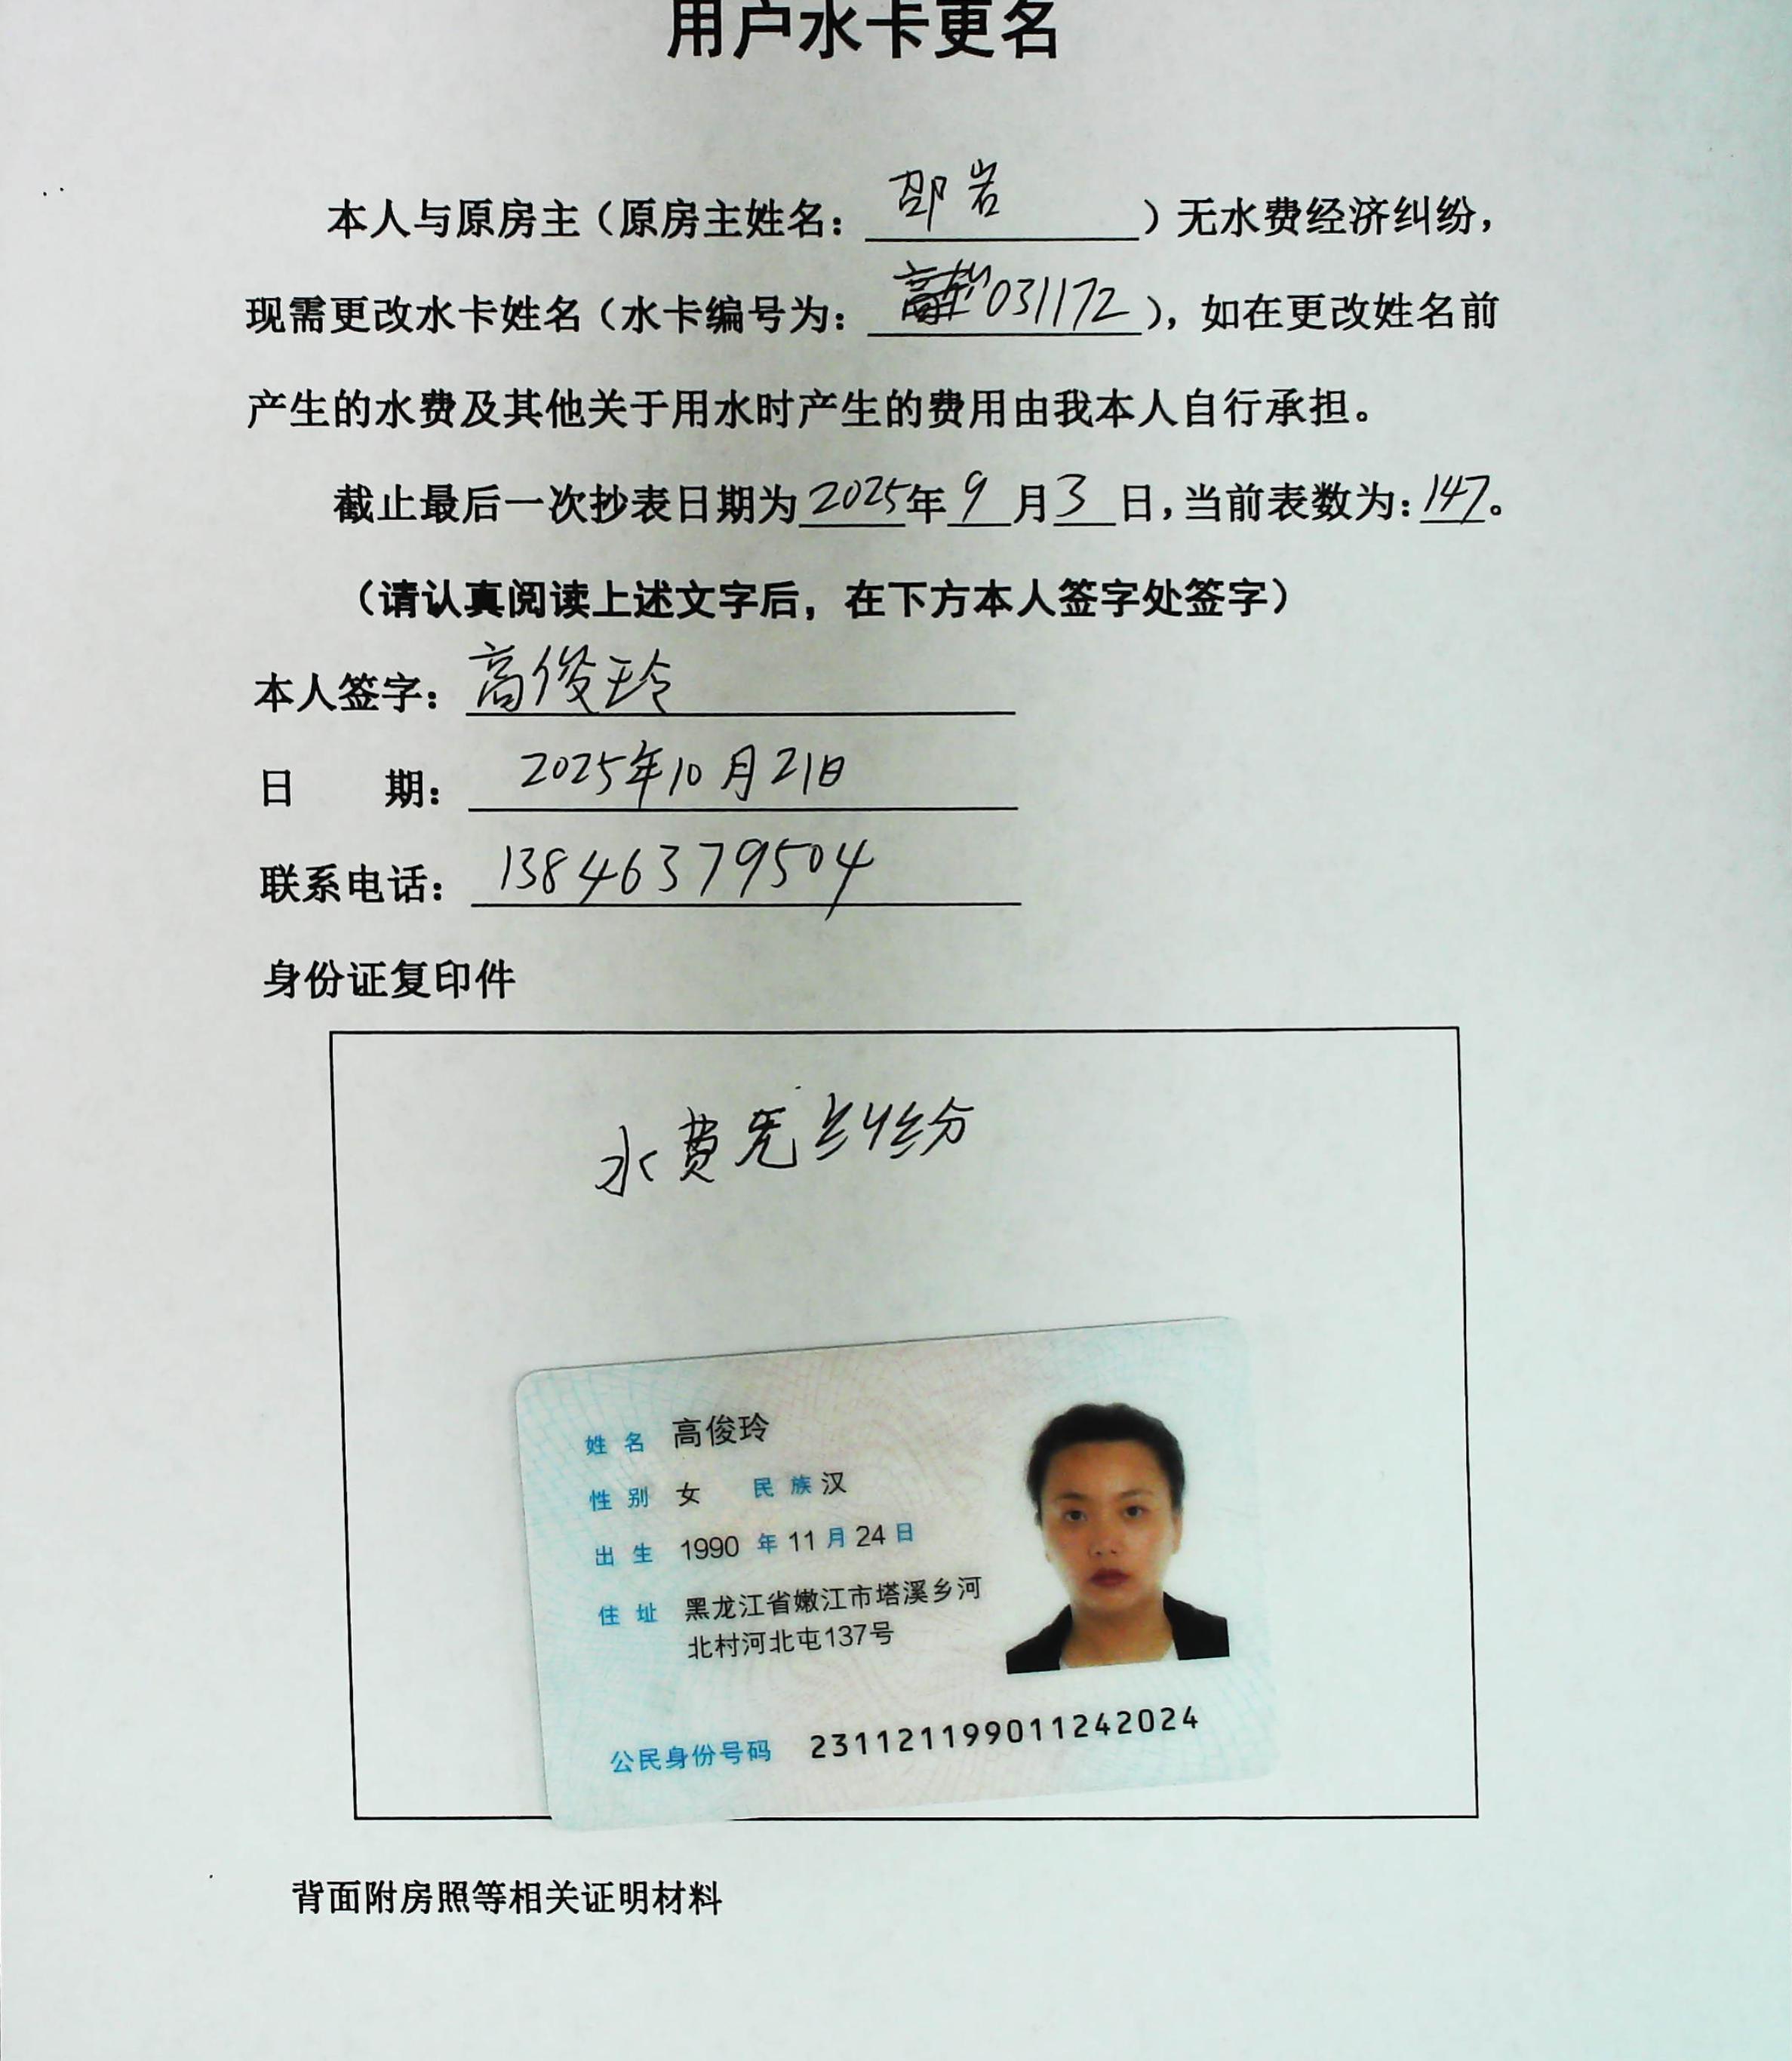 用户水卡更名
本人与原房主（原房主姓名：邵岩）无水费经济纠纷，
现需更改水卡姓名（水卡编号为：031172），如在更改姓名前
产生的水费及其他关于用水时产生的费用由我本人自行承担。
截止最后一次抄表日期为2025年9月3日，当前表数为：147。
（请认真阅读上述文字后，在下方本人签字处签字）
本人签字：高俊玲
日 期：2025年10月21日
联系电话：13846379504
身份证复印件
水费无纠纷
姓名 高俊玲
性别 女 民族 汉
出生 1990 年 11 月 24 日
住址 黑龙江省嫩江市塔溪乡河
北村河北屯137号
公民身份号码 231121199011242024
背面附房照等相关证明材料